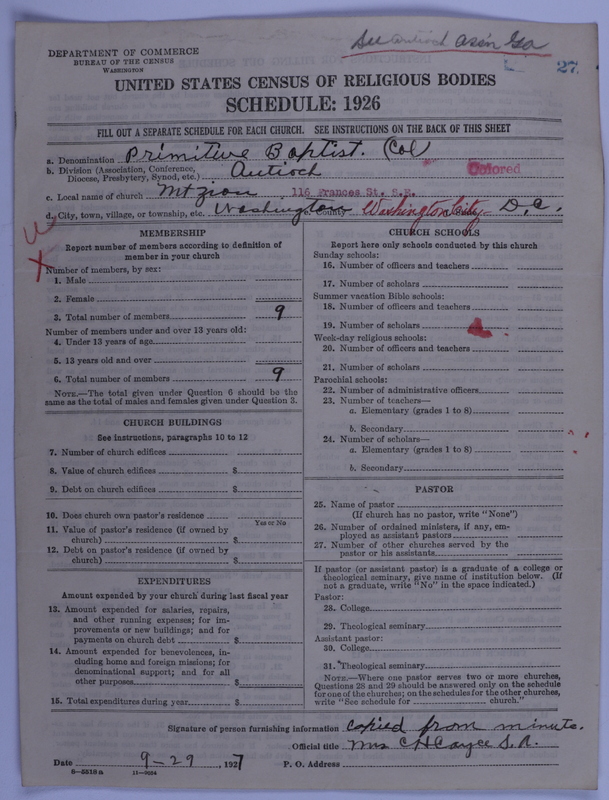 See Antioch Asso'n Ga
27.
DEPARTMENT OF COMMERCE
BUREAU OF THE CENSUS
WASHINGTON
UNITED STATES CENSUS OF RELIGIOUS BODIES
SCHEDULE: 1926
FILL OUT A SEPARATE SCHEDULE FOR EACH CHURCH. SEE INSTRUCTIONS ON THE BACK OF THIS SHEET
a. Denomination Primitive Baptist. (Col)
b. Division (Association, Conference, Diocese, Presbytery, Synod, etc.) Antioch Colored
c. Local name of church Mt zion 116 Frances St. S.E.
d. City, town, village, or township, etc. Washington County Washington City D.C.
MEMBERSHIP
Report number of members according to definition of
member in your church
Number of members, by sex:
1. Male
2. Female
3. Total number of members 9
Number of members under and over 13 years old:
4. Under 13 years of age
5. 13 years old and over
6. Total number of members 9
NOTE.—The total given under Question 6 should be the
same as the total of males and females given under Question 3.
CHURCH BUILDINGS
See instructions, paragraphs 10 to 12
7. Number of church edifices
8. Value of church edifices $
9. Debt on church edifices $
10. Does church own pastor's residence
Yes or No
11. Value of pastor's residence (if owned by
church) $
12. Debt on pastor's residence (if owned by
church) $
EXPENDITURES
Amount expended by your church during last fiscal year
13. Amount expended for salaries, repairs,
and other running expenses; for im-
provements or new buildings; and for
payments on church debt $
14. Amount expended for benevolences, in-
cluding home and foreign missions; for
denominational support; and for all
other purposes $
15. Total expenditures during year $
CHURCH SCHOOLS
Report here only schools conducted by this church
Sunday schools:
16. Number of officers and teachers
17. Number of scholars
Summer vacation Bible schools:
18. Number of officers and teachers
19. Number of scholars
Week-day religious schools:
20. Number of officers and teachers
21. Number of scholars
Parochial schools:
22. Number of administrative officers
23. Number of teachers—
a. Elementary (grades 1 to 8)
b. Secondary
24. Number of scholars—
a. Elementary (grades 1 to 8)
b. Secondary
PASTOR
25. Name of pastor
(If church has no pastor, write "None")
26. Number of ordained ministers, if any, em-
ployed as assistant pastors
27. Number of other churches served by the
pastor or his assistants
If pastor (or assistant pastor) is a graduate of a college or
theological seminary, give name of institution below. (If
not a graduate, write "No" in the space indicated.)
Pastor:
28. College
29. Theological seminary
Assistant pastor:
30. College
31. Theological seminary
NOTE.—Where one pastor serves two or more churches,
Questions 28 and 29 should be answered only on the schedule
for one of the churches; on the schedules for the other churches,
write "See schedule for church."
Signature of person furnishing information Copied from minute.
Official title Mrs CH Cayce S.A.
Date 9-29, 1927 P. O. Address
8-5518a 11-9094